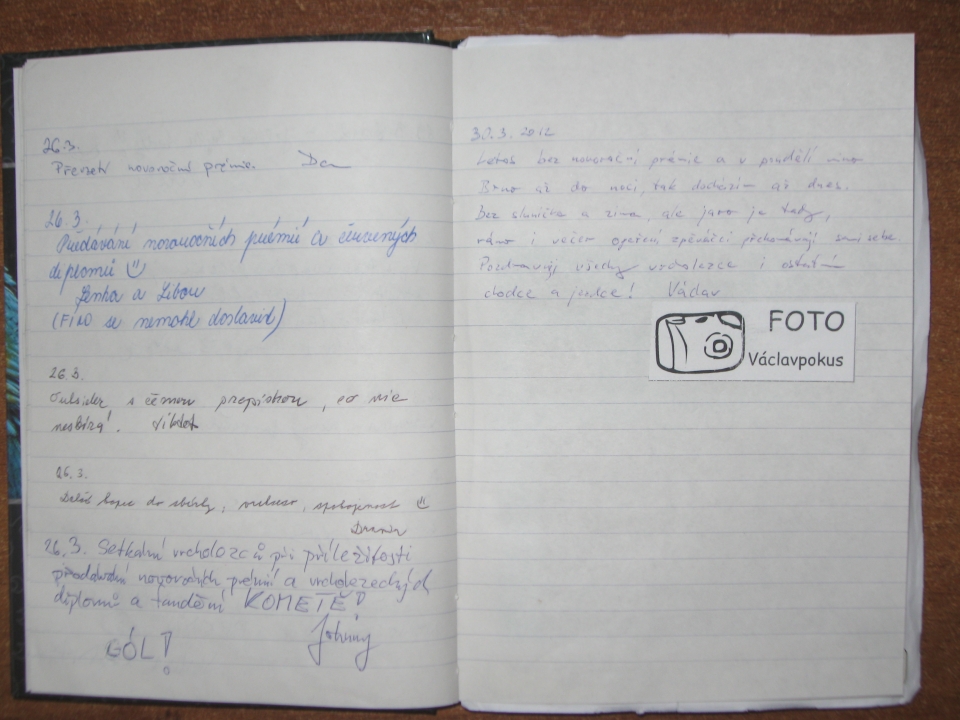 26.3.
Převzetí novoroční prémie. Da
26.3.
Předávání novoročních prémií a čtených
diplomů
Lenka a Libor
(FIDO se nemohl dostavit)
26.3.
Outsider s černou propiskou, co nic
nesbírá! Viktor
26.3.
Další kopec do sbírky, spokojenost
26.3. Setkání vrcholozců při příležitosti
předávání novoročních prémií a vrcholezeckých
diplomů a fandění KOMETĚ!
GÓL! Johnny
30.3. 2012
Letos bez novoroční prémie a v pondělí mimo
Brno až do noci, tak docházím až dnes.
Bez sluníčka a zima, ale jaro je tady,
ráno i večer opeření zpěváčci překonávají sami sebe
Pozdravuji všechny vrcholezce i ostatní
chodce a jezdce! Václav
FOTO
Václavpokus